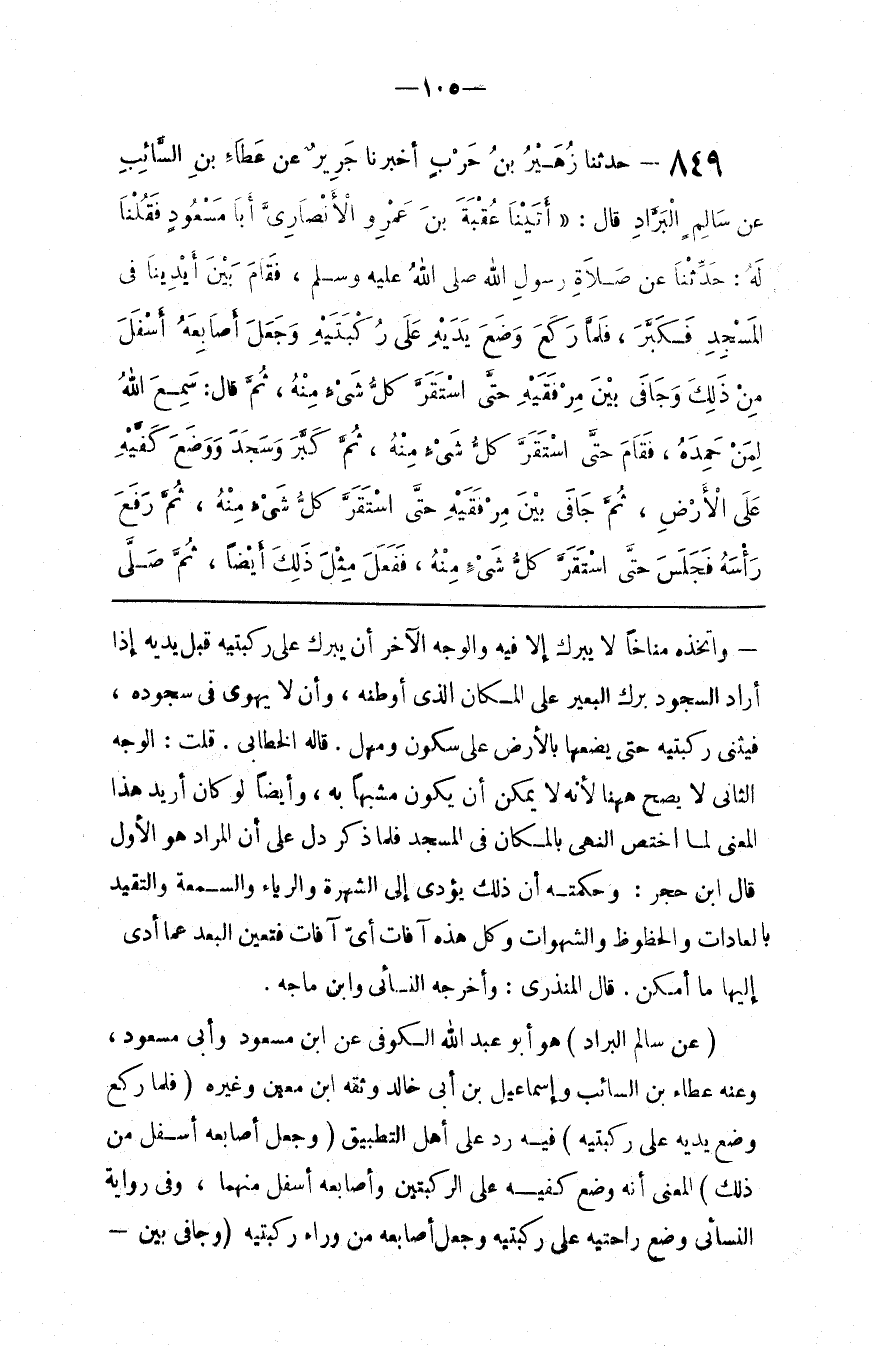 —١٠٥—
٨٤٩ — حدثنا زُهَيْرُ بنُ حَرْبٍ أخبرنا جَرِيرٌ عن عَطَاءِ بنِ السَّائِبِ
عن سَالِمٍ الْبَرَّادِ قال : « أَتَيْنَا عُقْبَةَ بنَ عَمْرٍو الْأَنْصَارِىَّ أَبَا مَسْعُودٍ فَقُلْنَا
لَهُ : حَدِّثْنَا عن صَلَاةِ رسولِ الله صلى اللهُ عليه وسلم ، فَقَامَ بَيْنَ أَيْدِينَا فى
المَسْجِدِ فَكَبَّرَ ، فَلمَّا رَكَعَ وَضَعَ يَدَيْهِ عَلَى رُكْبَتَيْهِ وَجَعَلَ أَصَابِعَهُ أَسْفَلَ
مِنْ ذَلِكَ وَجَافَى بَيْنَ مِرْفَقَيْهِ حتَّى اسْتَقَرَّ كلُّ شَىْءٍ مِنْهُ ، ثُمَّ قال: سَمِعَ اللهُ
لِمَنْ حَمِدَهُ ، فَقَامَ حتَّى اسْتَقَرَّ كلُّ شَىْءٍ مِنْهُ ، ثُمَّ كَبَّرَ وَسَجَدَ وَوَضَعَ كَفَّيْهِ
عَلَى الْأَرْضِ ، ثُمَّ جَافَى بَيْنَ مِرْفَقَيْهِ حتَّى اسْتَقَرَّ كلُّ شَىْءٍ مِنْهُ ، ثُمَّ رَفَعَ
رَأْسَهُ فَجَلَسَ حتَّى اسْتَقَرَّ كلُّ شَىْءٍ مِنْهُ ، فَفَعَلَ مِثْلَ ذَلِكَ أَيْضاً ، ثُمَّ صَلَّى
— واتخذه مناخاً لا يبرك إلا فيه والوجه الآخر أن يبرك على ركبتيه قبل يديه إذا
أراد السجود برك البعير على المكان الذى أوطنه ، وأن لا يهوى فى سجوده ،
فيثنى ركبتيه حتى يضعها بالأرض على سكون ومهل . قاله الخطابى . قلت : الوجه
الثانى لا يصح ههنا لأنه لا يمكن أن يكون مشبهاً به ، وأيضاً لو كان أريد هذا
المعنى لما اختص النهى بالمكان فى المسجد فلما ذكر دل على أن المراد هو الأول
قال ابن حجر : وحكمته أن ذلك يؤدى إلى الشهرة والرياء والسمعة والتقيد
بالعادات والحظوظ والشهوات وكل هذه آفات أىّ آفات فتعين البعد عما أدى
إليها ما أمكن . قال المنذرى : وأخرجه النسائى وابن ماجه .
( عن سالم البراد ) هو أبو عبد الله الكوفى عن ابن مسعود وأبى مسعود ،
وعنه عطاء بن السائب وإسماعيل بن أبى خالد وثقه ابن معين وغيره ( فلما ركع
وضع يديه على ركبتيه ) فيه رد على أهل التطبيق ( وجعل أصابعه أسفل من
ذلك ) المعنى أنه وضع كفيه على الركبتين وأصابعه أسفل منهما ، وفى رواية
النسائى وضع راحتيه على ركبتيه وجعل أصابعه من وراء ركبتيه ( وجافى بين —